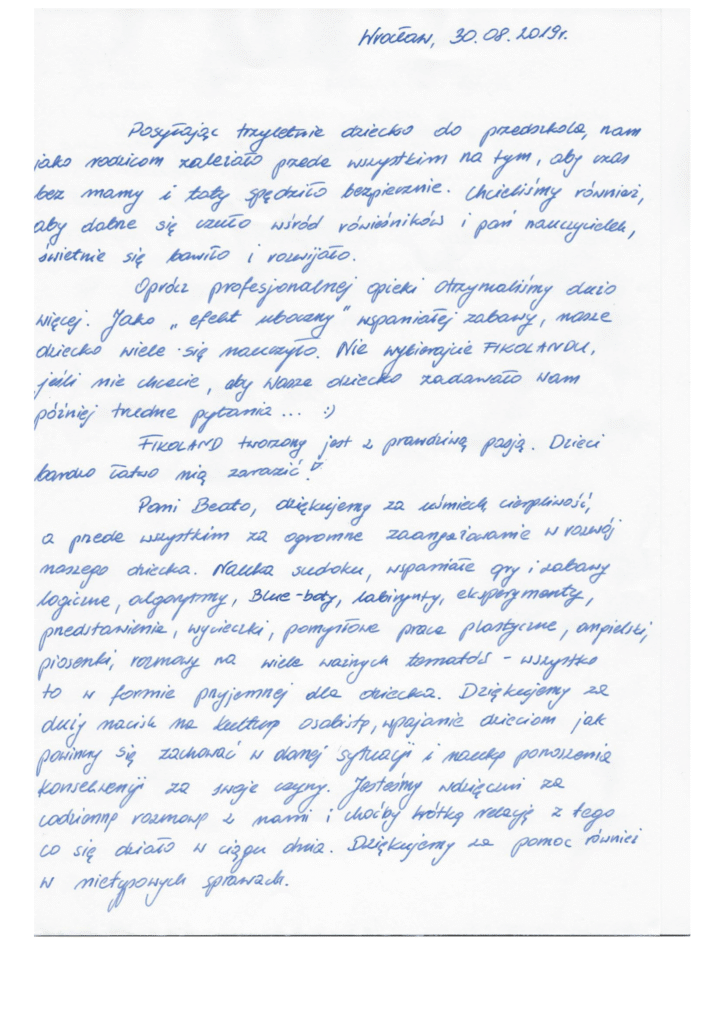 Wrocław, 30.08.2019r.
Posyłając trzyletnie dziecko do przedszkola, nam
jako rodzicom zależało przede wszystkim na tym, aby czas
bez mamy i taty spędziło bezpiecznie. Chcieliśmy również,
aby dobrze się czuło wśród rówieśników i pań nauczycielek,
świetnie się bawiło i rozwijało.
Oprócz profesjonalnej opieki otrzymaliśmy dużo
więcej. Jako „efekt uboczny” wspaniałej zabawy, nasze
dziecko wiele się nauczyło. Nie wybierajcie FIKOLANDU,
jeśli nie chcecie, aby Wasze dziecko zadawało Wam
później trudne pytania... :)
FIKOLAND tworzony jest z prawdziwą pasją. Dzieci
bardzo łatwo nią zarazić!
Pani Beato, dziękujemy za uśmiech, cierpliwość,
a przede wszystkim za ogromne zaangażowanie w rozwój
naszego dziecka. Nauka sudoku, wspaniałe gry i zabawy
logiczne, algorytmy, Blue-boty, labirynty, eksperymenty,
przedstawienia, wycieczki, pomysłowe prace plastyczne, angielski,
piosenki, rozmowy na wiele ważnych tematów - wszystko
to w formie przyjemnej dla dziecka. Dziękujemy za
duży nacisk na kulturę osobistą, wpajanie dzieciom jak
powinny się zachować w danej sytuacji i naukę ponoszenia
konsekwencji za swoje czyny. Jesteśmy wdzięczni za
codzienną rozmowę z nami i choćby krótką relację z tego
co się działo w ciągu dnia. Dziękujemy za pomoc również
w nietypowych sprawach.